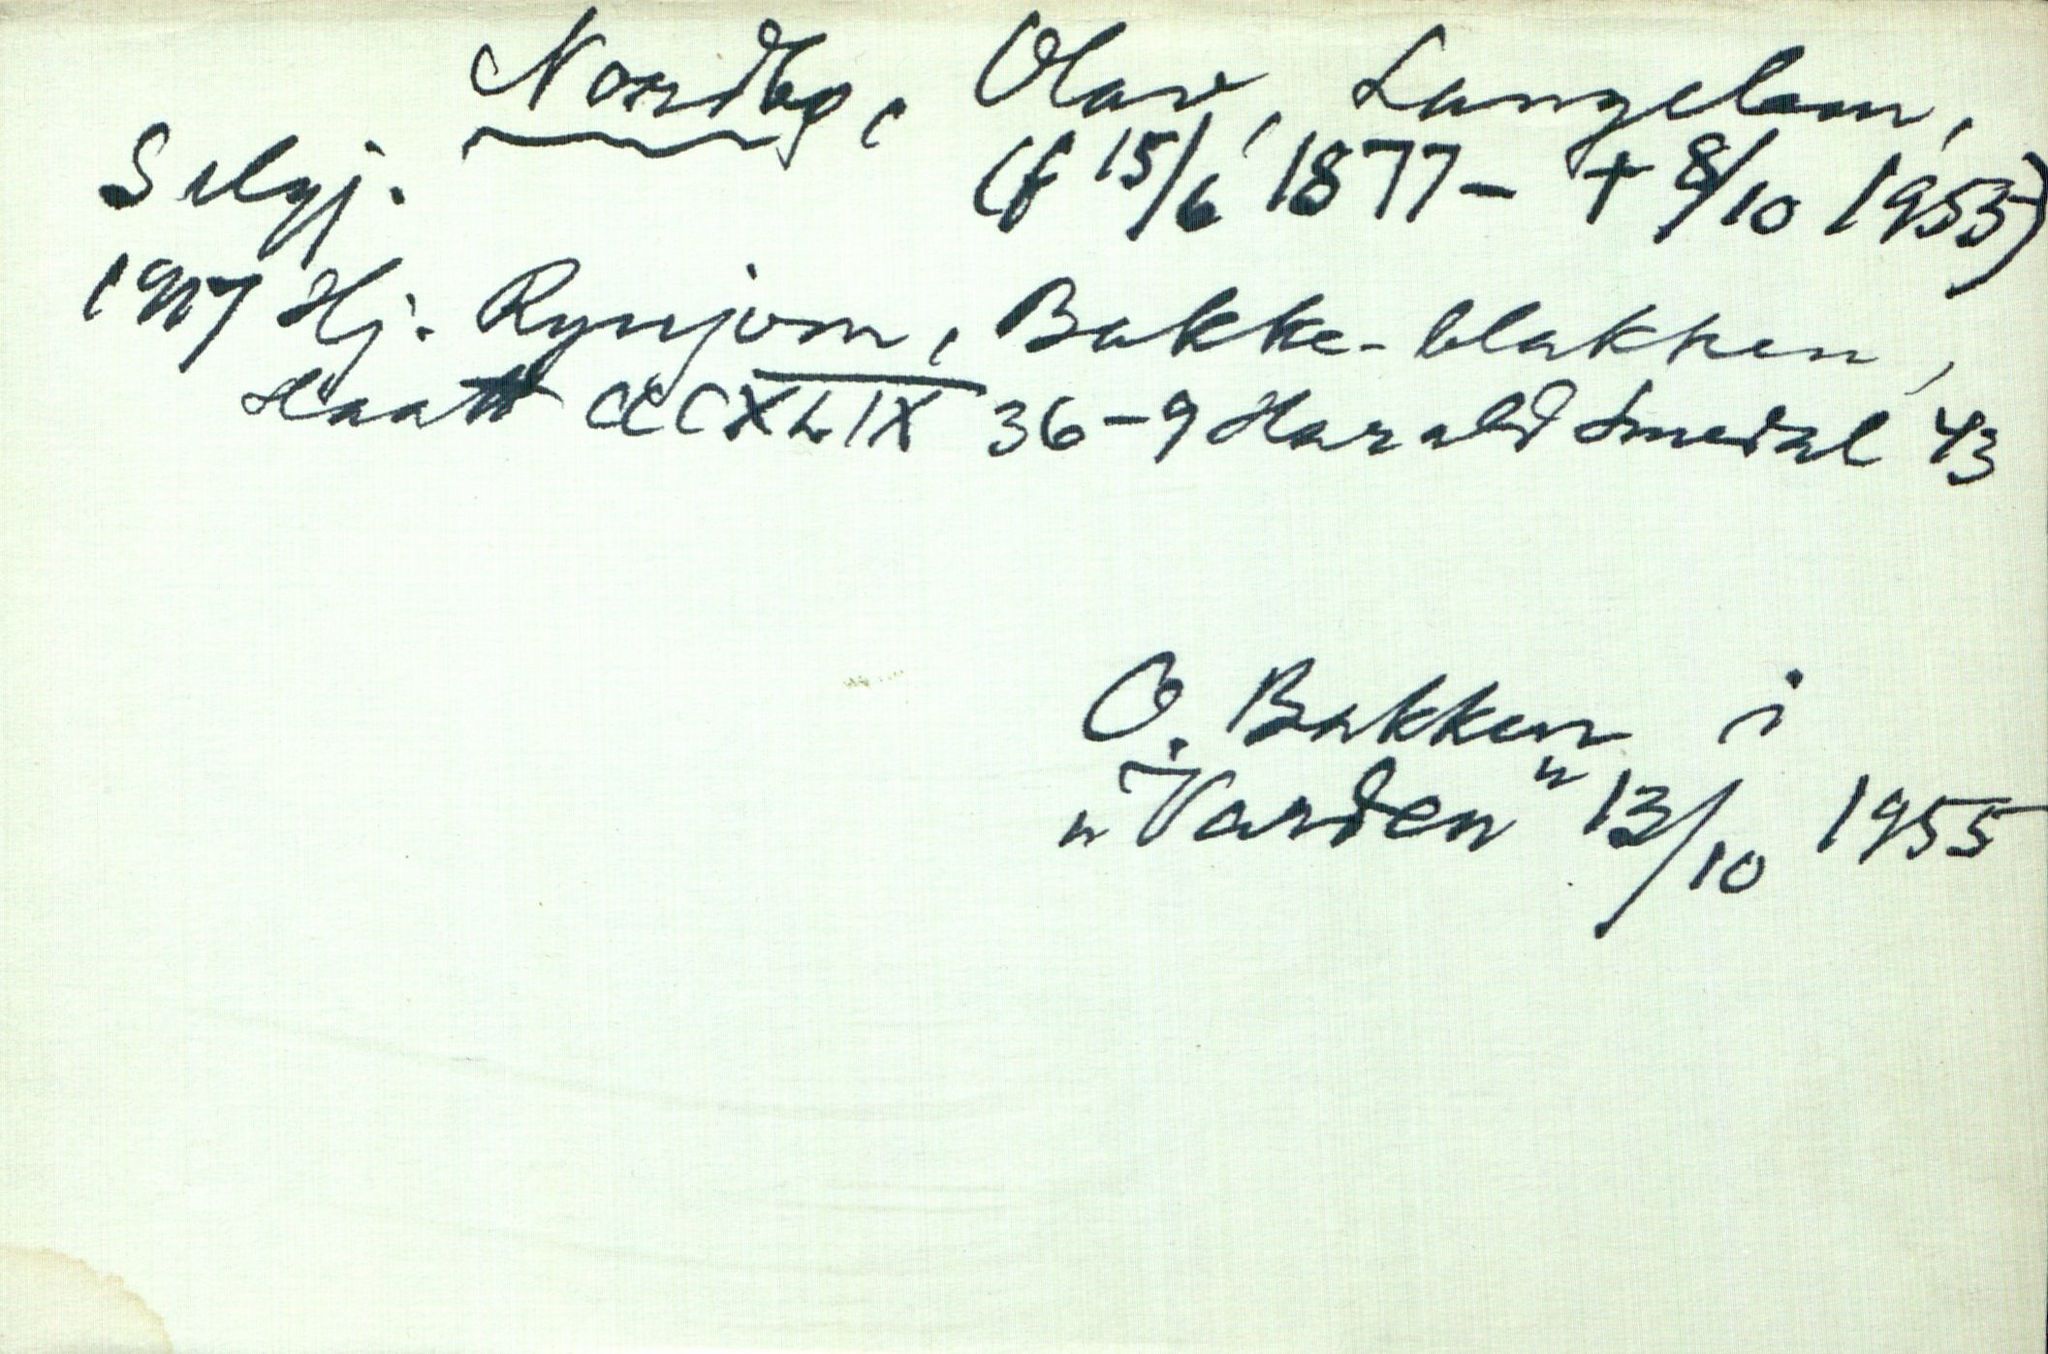 Nordbø, Olav, Langelem,
Selgj. (f 15/6 1877 - + 8/10 1955)
1907 Hj. Rynjom, Bakke-blakken,
Haatt CCCXLIX 36-9 Harald Smedal 43
O. Bakken i
"Varden" 13/10 1955